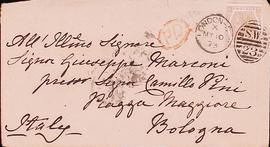 PD
LONDON
MY 10
73
All' Illmo Signore
Signor Giuseppe Marconi
presso Signor Camillo Pini
Piazza Maggiore
Italy Bologna